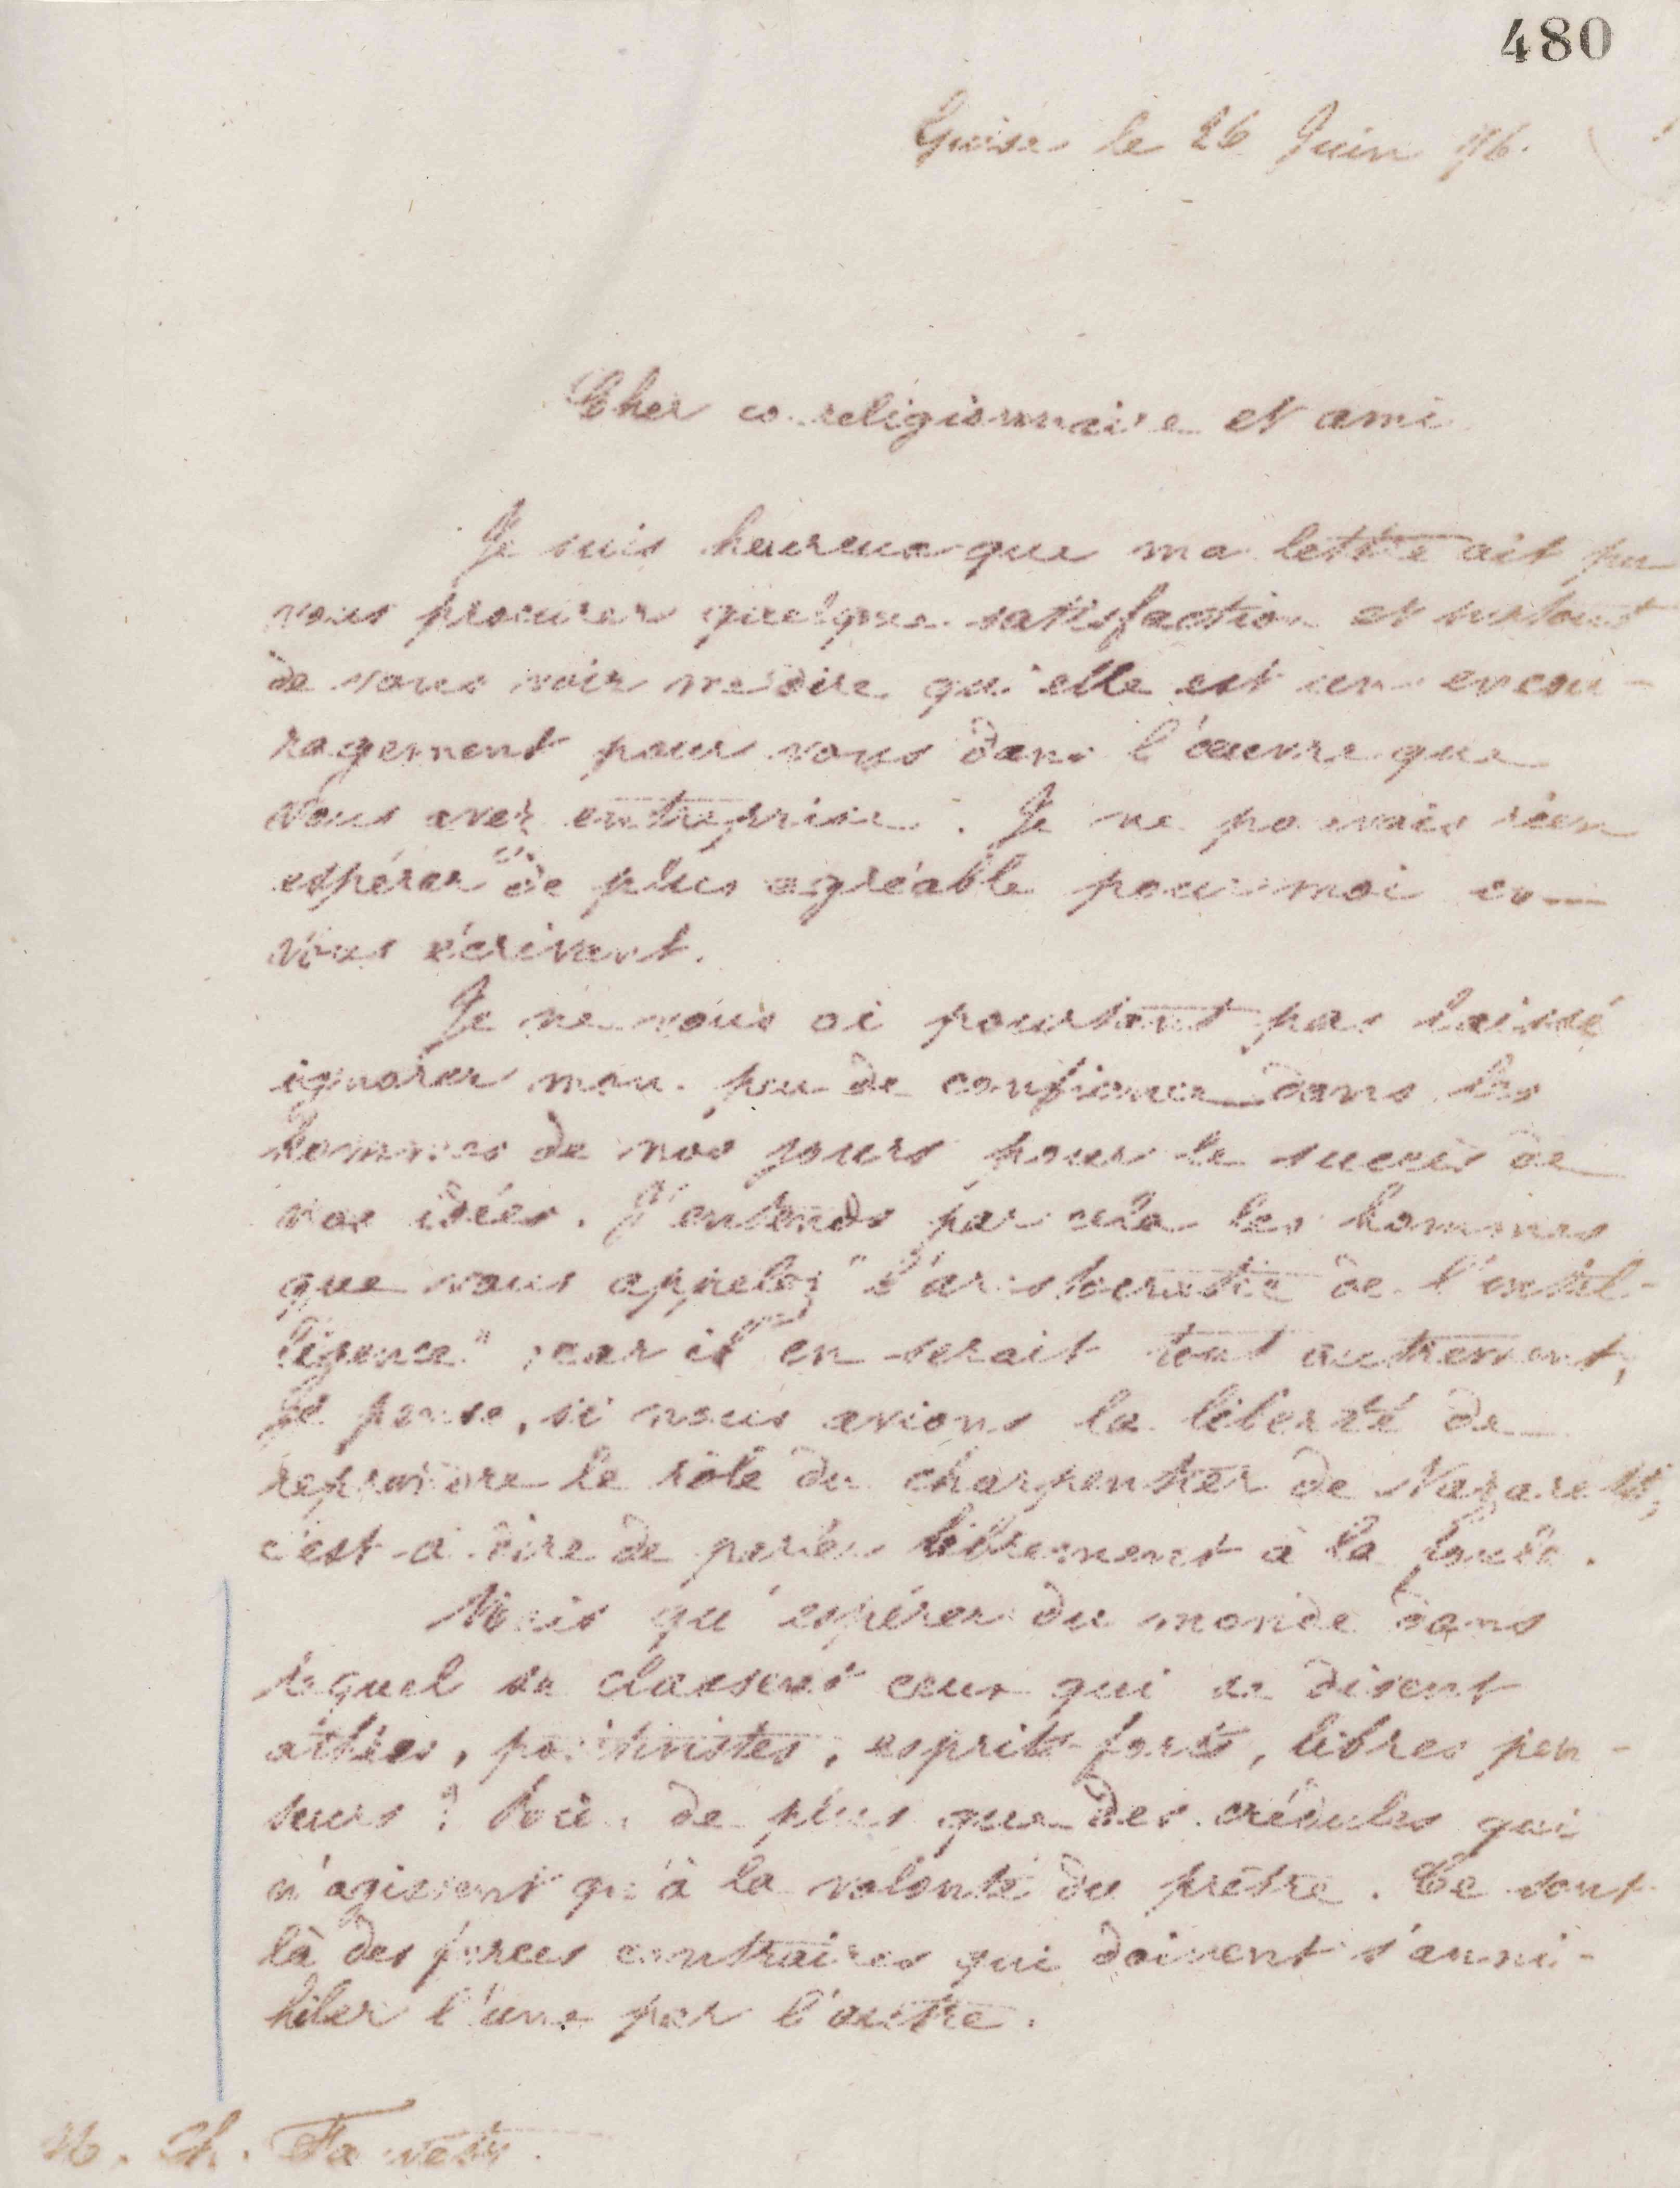 480
Guise le 26 Juin 76.
Cher co-religionnaire et ami
Je suis heureux que ma lettre ait pu
vous procurer quelque satisfaction et surtout
de vous voir me dire qu'elle est un encou-
ragement pour vous dans l'œuvre que
vous avez entreprise. Je ne pouvais rien
espérer de plus agréable pour moi en
vous écrivant.
Je ne vous ai pourtant pas laissé
ignorer mon peu de confiance dans les
hommes de nos jours pour le succès de
nos idées. J'entends par cela les hommes
que vous appelez "l'aristocratie de l'intel-
ligence", car il en serait tout autrement,
je pense, si nous avions la liberté de
reprendre le rôle du charpentier de Nazareth,
c'est-à-dire de parler librement à la foule.
Mais qu'espérer du monde dans
lequel se classent ceux qui se disent
athées, positivistes, esprits forts, libres pen-
seurs? Rien de plus que des crédules qui
n'agissent qu'à la volonté du prêtre. Ce sont
là des forces contraires qui doivent s'anni-
hiler l'une par l'autre.
M. Ch. Fauvety.